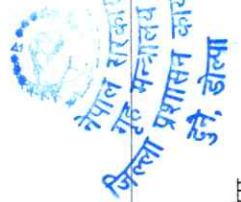 नेपाल सरकार
गृह मन्त्रालय
जिल्ला प्रशासन कार्या
दुनै, डोल्पा